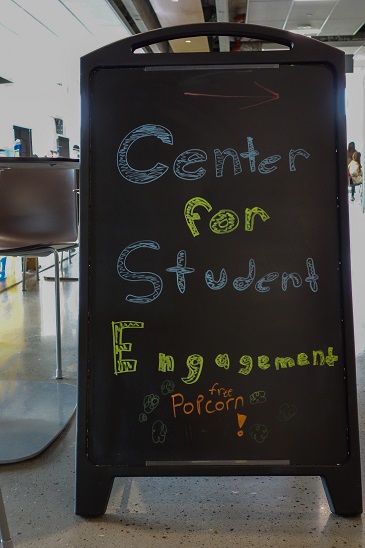 Center
for
Student
Engagement
free
Popcorn
!